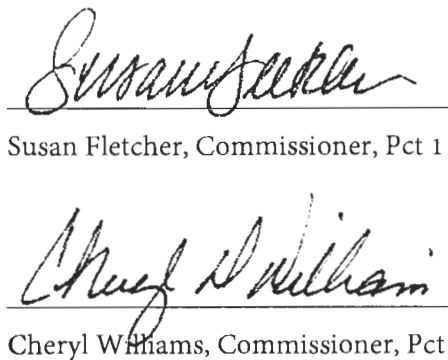 Susan Fletcher
Susan Fletcher, Commissioner, Pct 1
Cheryl D Williams
Cheryl Williams, Commissioner, Pct